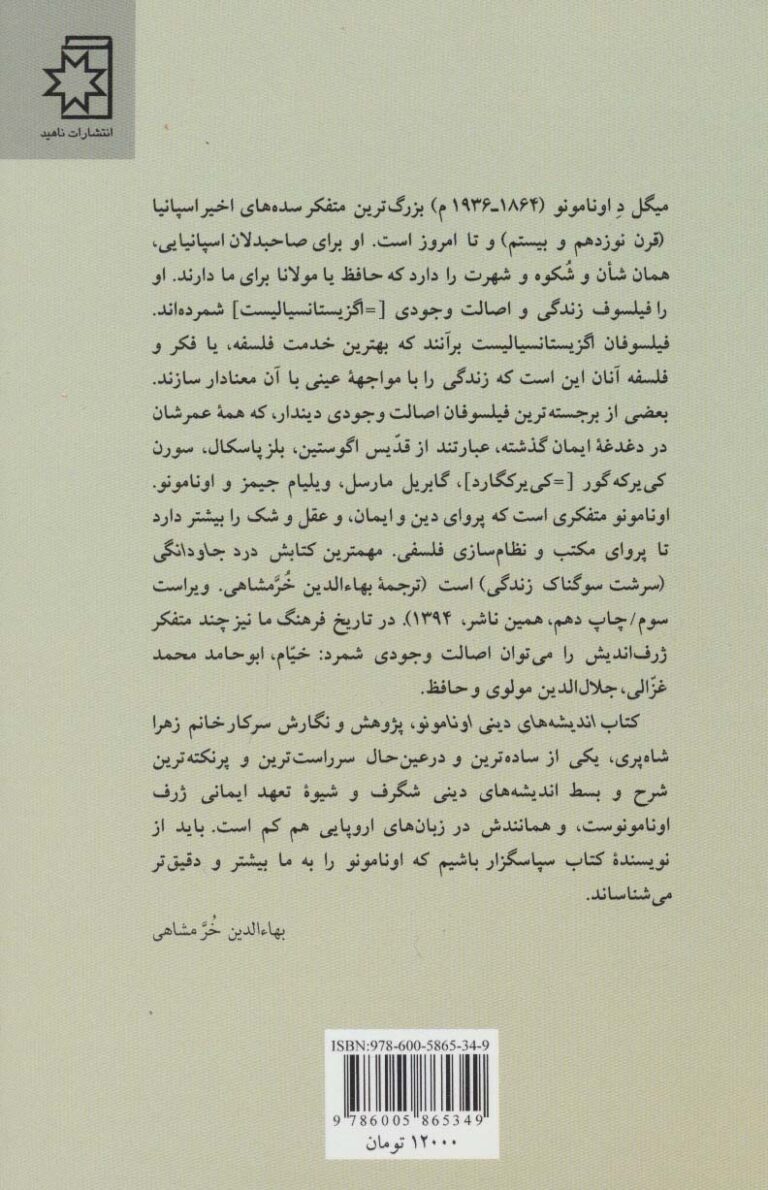 انتشارات ناهید
میگل دِ اونامونو (۱۸۶۴ـ۱۹۳۶ م) بزرگ‌ترین متفکر سده‌های اخیر اسپانیا
(قرن نوزدهم و بیستم) و تا امروز است. او برای صاحبدلان اسپانیایی،
همان شأن و شُکوه و شهرت را دارد که حافظ یا مولانا برای ما دارند. او
را فیلسوف زندگی و اصالت وجودی [=اگزیستانسیالیست] شمرده‌اند.
فیلسوفان اگزیستانسیالیست برآنند که بهترین خدمت فلسفه، یا فکر و
فلسفه آنان این است که زندگی را با مواجههٔ عینی با آن معنادار سازند.
بعضی از برجسته‌ترین فیلسوفان اصالت وجودی دیندار، که همهٔ عمرشان
در دغدغهٔ ایمان گذشته، عبارتند از قدّیس اگوستین، بلز پاسکال، سورن
کی‌یرکه گور [=کی‌یرکگارد]، گابریل مارسل، ویلیام جیمز و اونامونو.
اونامونو متفکری است که پروای دین و ایمان، و عقل و شک را بیشتر دارد
تا پروای مکتب و نظام‌سازی فلسفی. مهمترین کتابش درد جاودانگی
(سرشت سوگناک زندگی) است (ترجمهٔ بهاءالدین خُرَّمشاهی. ویراست
سوم/چاپ دهم، همین ناشر، ۱۳۹۴). در تاریخ فرهنگ ما نیز چند متفکر
ژرف‌اندیش را می‌توان اصالت وجودی شمرد: خیّام، ابوحامد محمد
غزّالی، جلال‌الدین مولوی و حافظ.
کتاب اندیشه‌های دینی اونامونو، پژوهش و نگارش سرکار خانم زهرا
شاه‌پری، یکی از ساده‌ترین و درعین‌حال سرراست‌ترین و پرنکته‌ترین
شرح و بسط اندیشه‌های دینی شگرف و شیوهٔ تعهد ایمانی ژرف
اونامونوست، و همانندش در زبان‌های اروپایی هم کم است. باید از
نویسندهٔ کتاب سپاسگزار باشیم که اونامونو را به ما بیشتر و دقیق‌تر
می‌شناساند.
بهاءالدین خُرَّمشاهی
ISBN:978-600-5865-34-9
9 786005 865349
۱۲۰۰۰ تومان